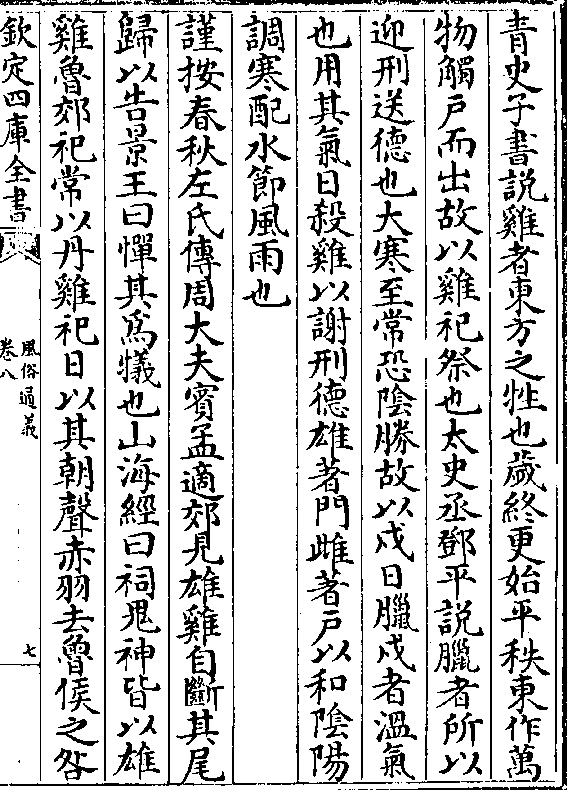 青史子書說雞者東方之牲也歲終更始平秩東作萬
物觸戶而出故以雞祀祭也太史丞鄧平說臘者所以
迎刑送德也大寒至常恐陰勝故以戌日臘戌者溫氣
也用其氣日殺雞以謝刑德雄著門雌著戶以和陰陽
調寒配水節風雨也
謹按春秋左氏傳周大夫賓孟適郊見雄雞自斷其尾
歸以告景王曰憚其為犧也山海經曰祠鬼神皆以雄
雞魯郊祀常以丹雞祀日以其朝聲赤羽去魯侯之咎
欽定四庫全書
風俗通義
卷八
七